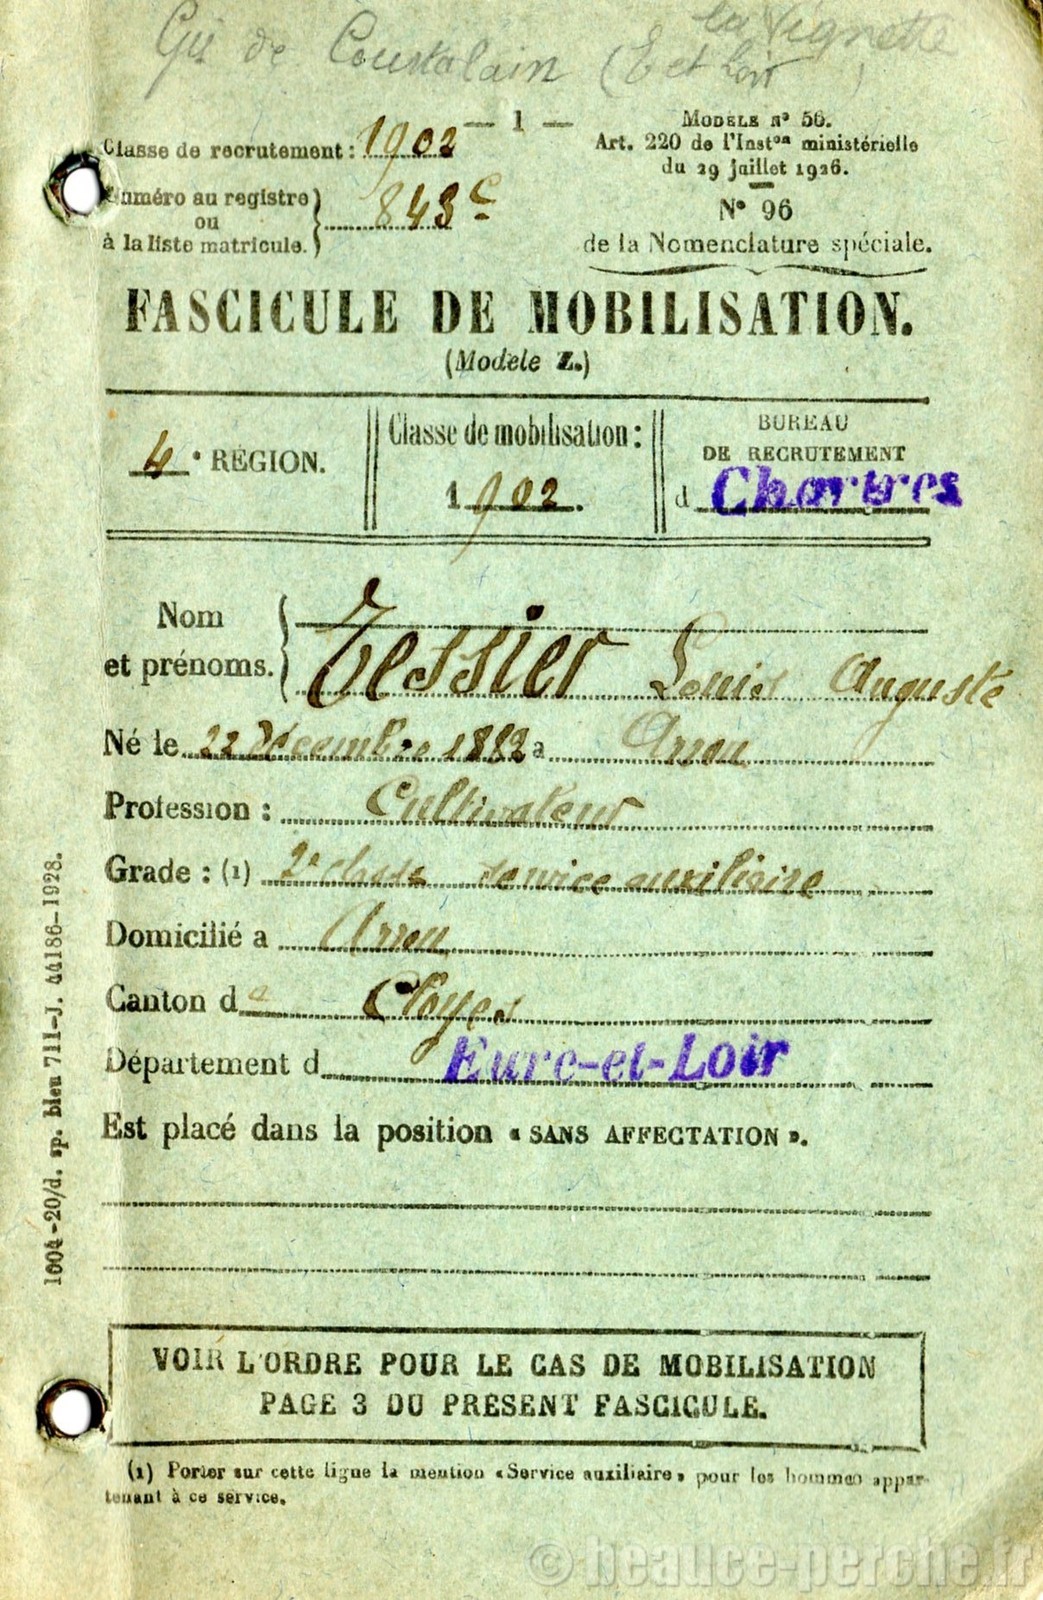 la Vignette
Gie de Courtalain (E et Loir)
— 1 —
Classe de recrutement : 1902
Modèle nº 56.
Art. 220 de l'Instºⁿ ministérielle
du 29 juillet 1926.
Numéro au registre
ou
à la liste matricule. } 843
Nº 96
de la Nomenclature spéciale.
FASCICULE DE MOBILISATION.
(Modèle Z.)
4e RÉGION.
Classe de mobilisation :
1902.
BUREAU
DE RECRUTEMENT
d Chartres
Nom
et prénoms. } Tessier Louis Auguste
Né le 22 décembre 1882 a Arrou
Profession : Cultivateur
Grade : (1) 2e classe service auxiliaire
Domicilié a Arrou
Canton de Cloyes
Département d Eure-et-Loir
Est placé dans la position « SANS AFFECTATION ».
VOIR L'ORDRE POUR LE CAS DE MOBILISATION
PAGE 3 DU PRÉSENT FASCICULE.
(1) Porter sur cette ligne la mention «Service auxiliaire» pour les hommes appar-
tenant à ce service.
1604-20/d. sp. bleu 711-J. 44186-1928.
© beauce-perche.fr